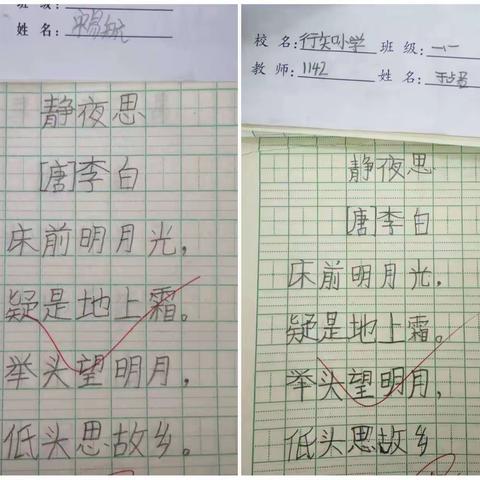 姓名:
静夜思
[唐]李白
床前明月光,
疑是地上霜。
举头望明月,
低头思故乡。
校名:行知小学 班级:一1
教师:1142 姓名:
静夜思
[唐]李白
床前明月光,
疑是地上霜。
举头望明月,
低头思故乡